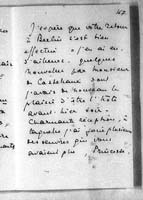 47
J'espère que votre retour
à Berlin s'est bien
effectué. J'en ai eu,
d'ailleurs, quelques
nouvelles par Monsieur
de Castellane dont
j'avais de nouveau le
plaisir d'être l'hôte
avant-hier soir.
Charmante réception, à
laquelle j'ai joint plusieurs
des oeuvres qui vous
avaient plu, Princesse.